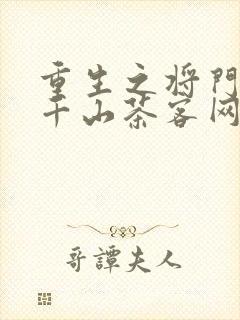 重生之将門
千山茶客网
哥譚夫人